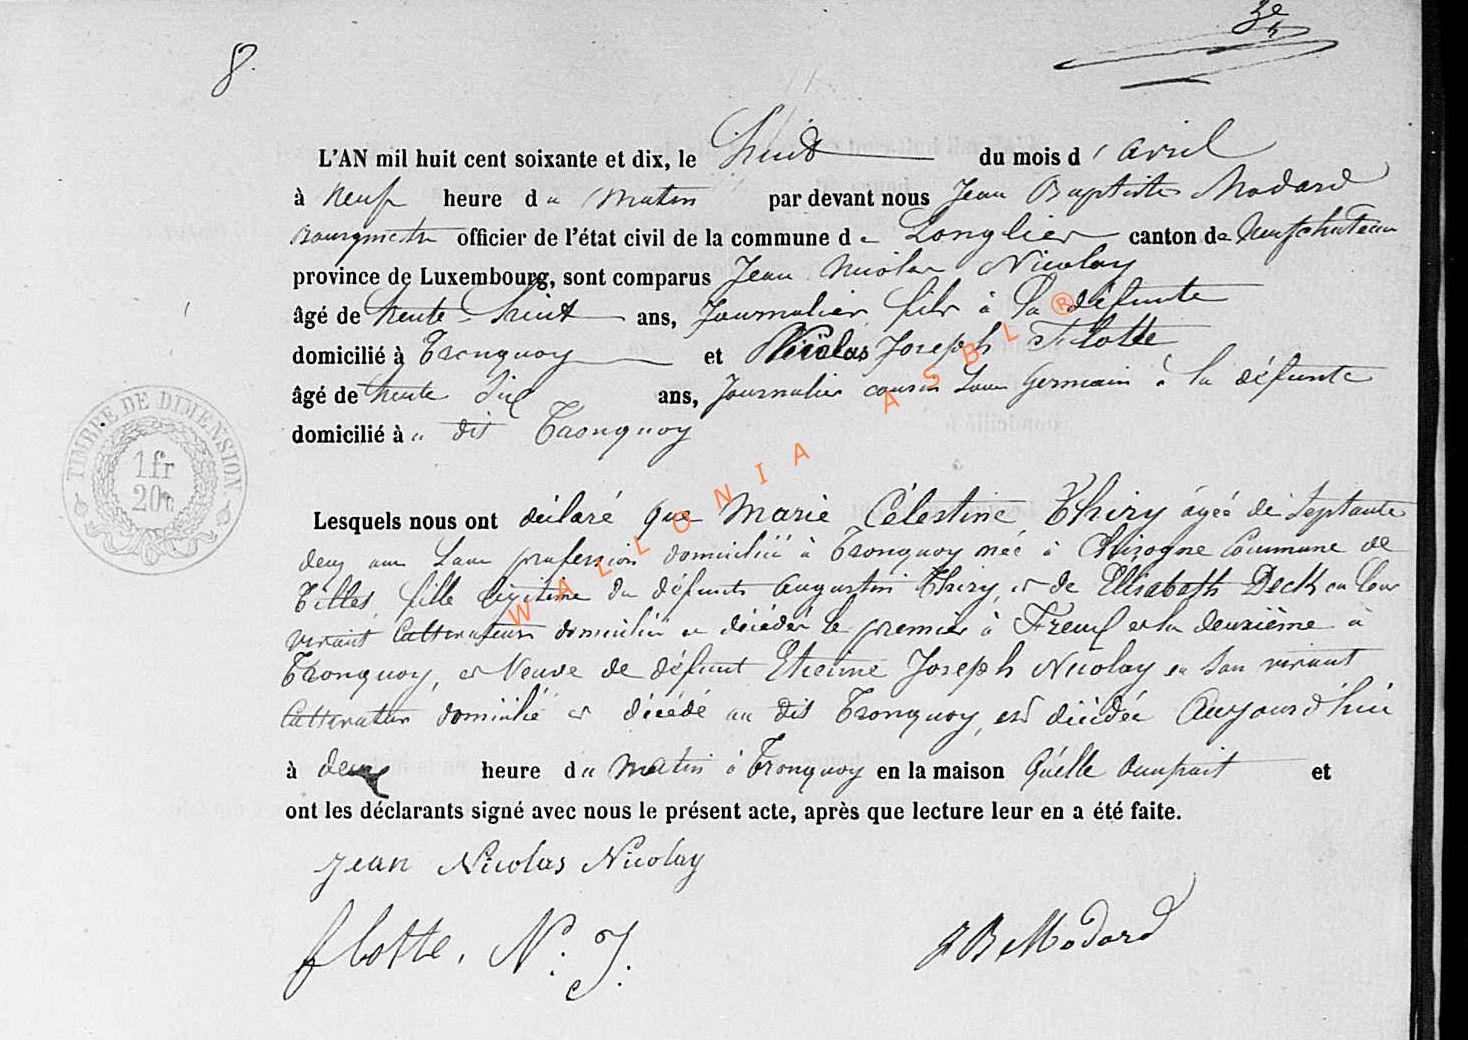 3e
8.
L'AN mil huit cent soixante et dix, le huit du mois d'avril
à neuf heure du matin par devant nous Jean Baptiste Modard
Bourgmestre officier de l'état civil de la commune de Longlier canton de Neufchateau
province de Luxembourg, sont comparus Jean Nicolas Nicolay
âgé de trente huit ans, Journalier fils à la défunte
domicilié à Tronquoy et Nicolas Joseph Flotte
âgé de trente six ans, Journalier cousin sous Germain à la défunte
domicilié à u dit Tronquoy
TIMBRE DE DIMENSION
1 fr
20c
Lesquels nous ont déclaré que Marie Célestine Thiry âgée de septante
deux ans sans profession domiciliée à Tronquoy née à Commune de
Tillet, fille légitime du défunts Augustin Thiry, et de Elisabeth Deck en leur
vivant Cultivateurs domiciliés et décédés le premier à Freux et la deuxième à
Tronquoy, et Veuve de défunt Etienne Joseph Nicolay en son vivant
Cultivateur domicilié et décédé au dit Tronquoy, est décédée Aujourd'hui
à deux heure du matin à Tronquoy en la maison Qu'elle occupait et
ont les déclarants signé avec nous le présent acte, après que lecture leur en a été faite.
Jean Nicolas Nicolay
flotte, N. J.
JB Modard
WALLONIA ASBL ®